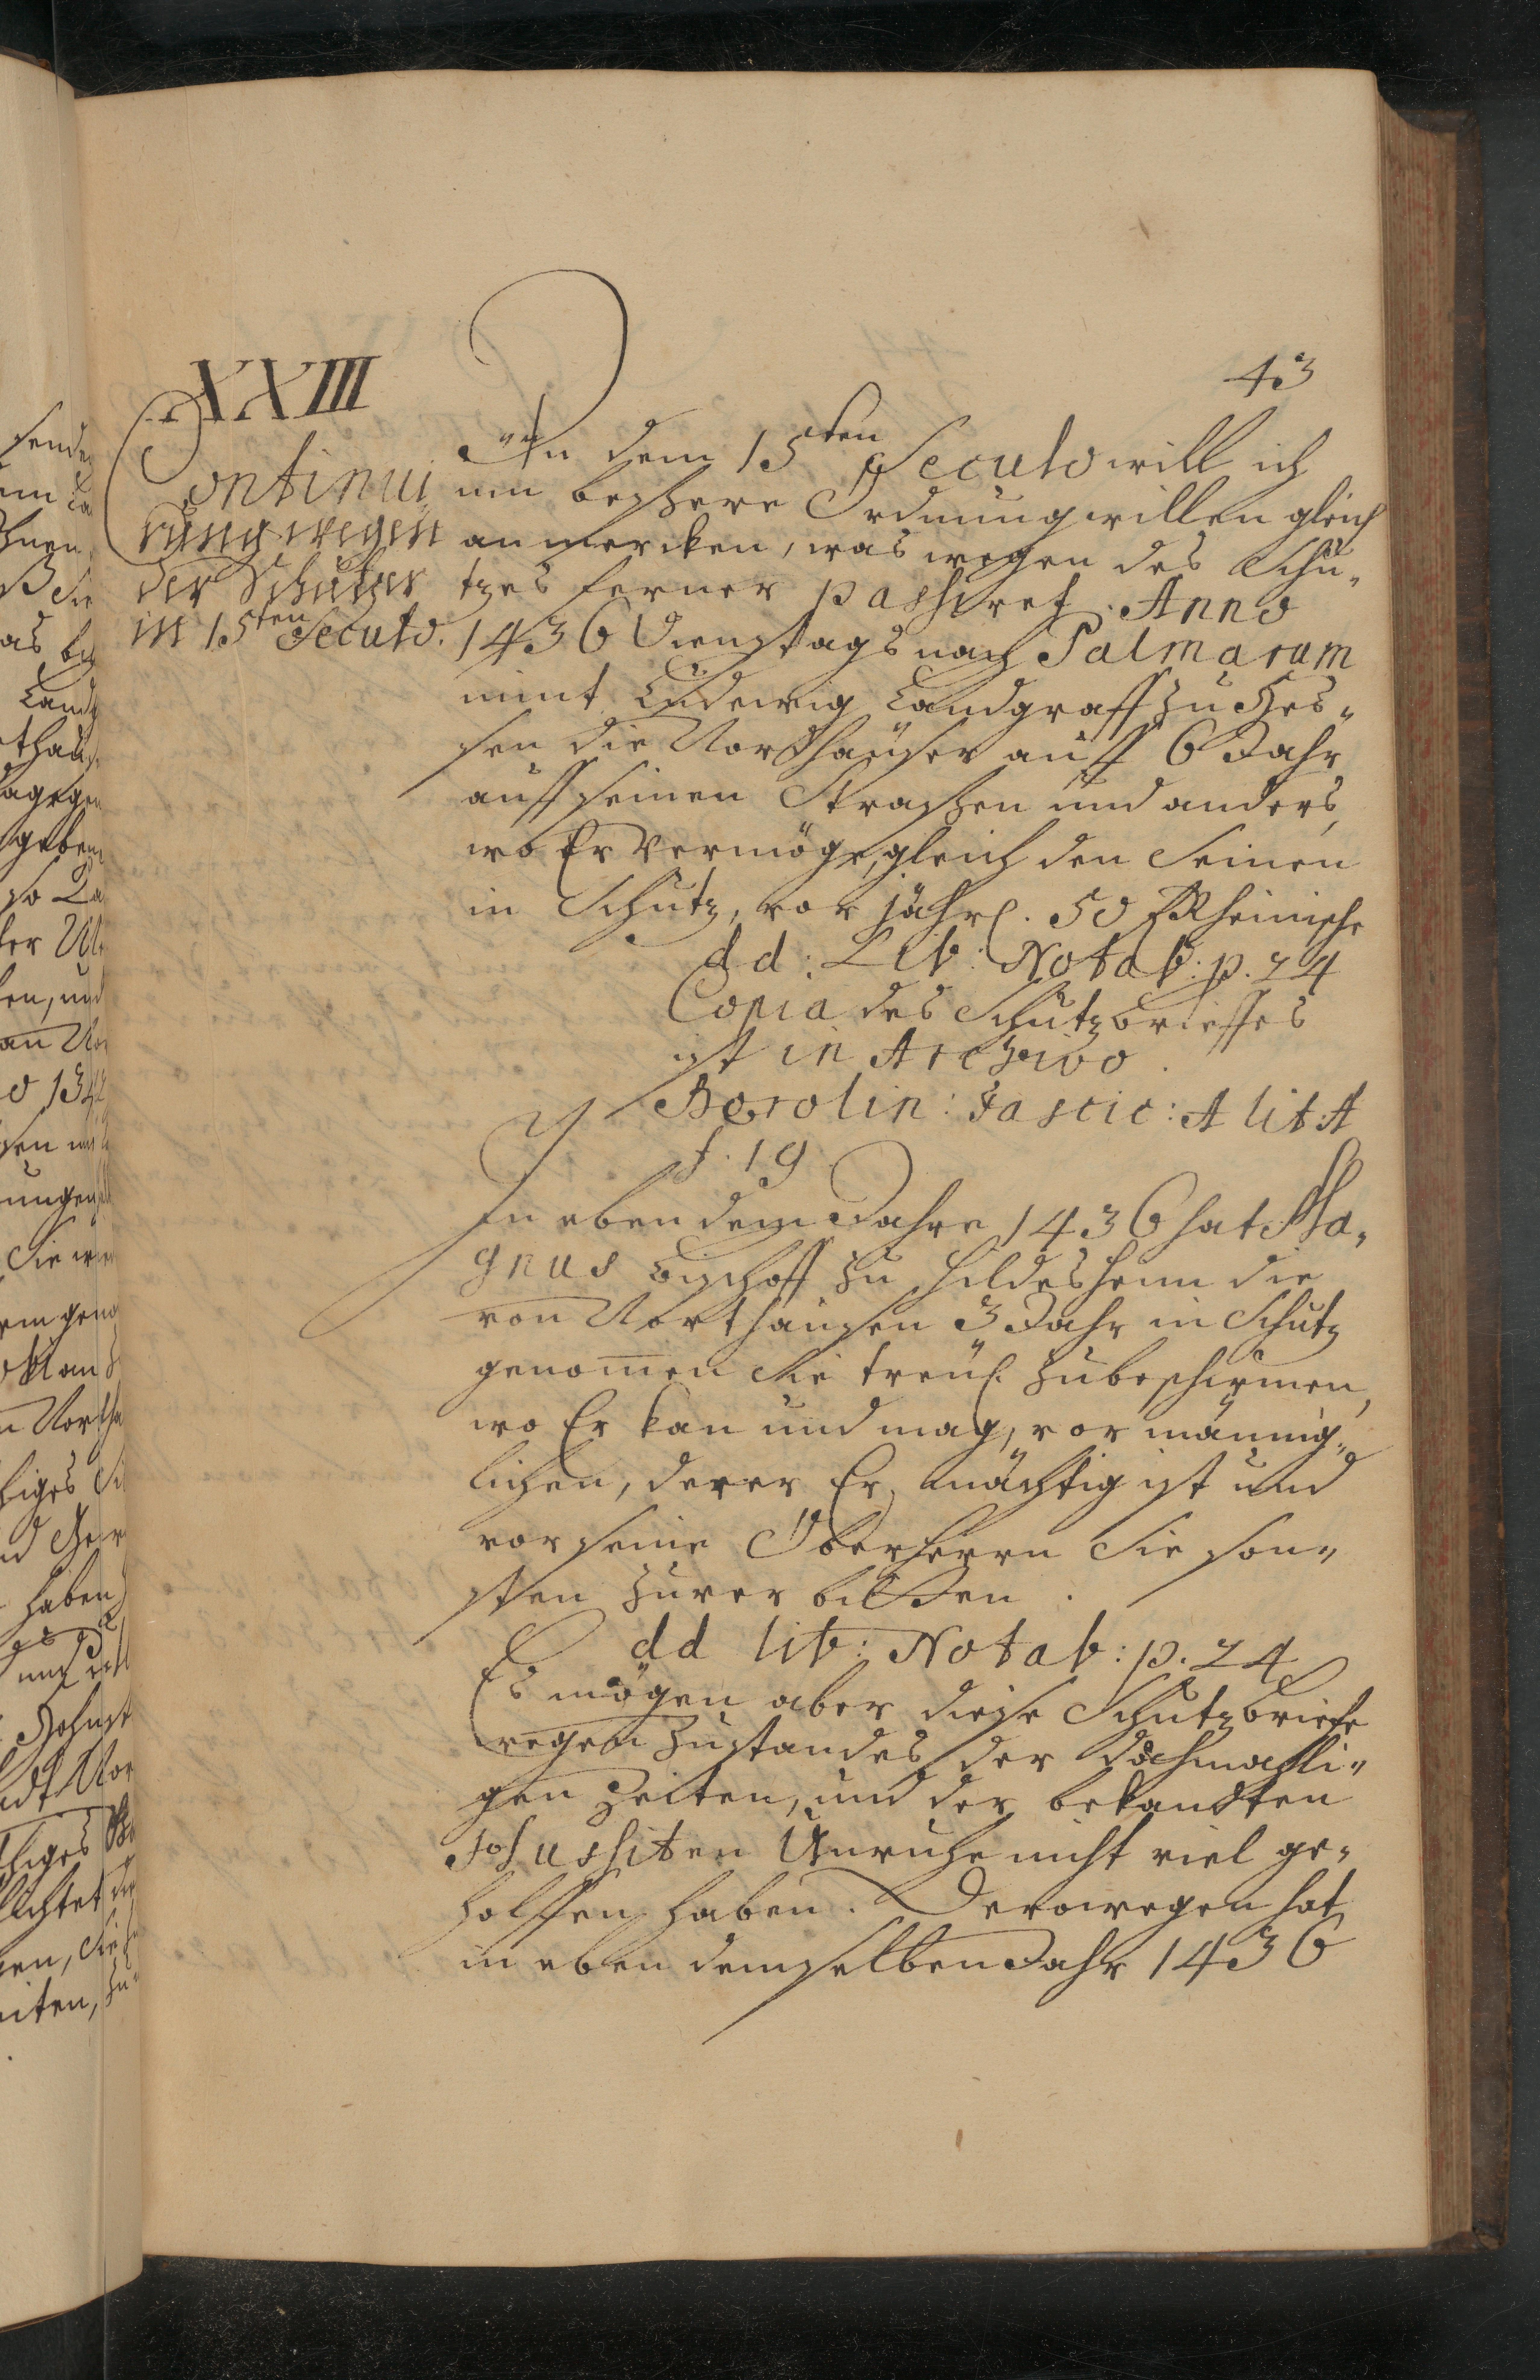 43
XXIII
Continui
rung wegen
der Schutzes
in 15ten Seculo.
In dem 15ten Seculo will ich
um beßere Ordnung willen gleich
anmercken, was wegen des Schu-
tzes ferner passiret. Anno
1436 Dienstags nach Palmarum
nimt Ludewig Landgraff zu Hes-
sen die Nordhäußer auff 6 Jahr
auff seinen Straßen und anders,
wo Er vermöge, gleich den Seinen
in Schutz, vor jährl. 50 f Rheinische
dd: Lib: Notab: p. 24
Copia des Schutzbrieffes
ist in Archivo.
Berolin: Fascic: A lit: A
f. 19
In eben dem Jahre 1436 hat Ma-
gnus Bischoff zu Hildesheim die
von Northausen 3 Jahr in Schutz
genomen Sie treul. zubeschirmen,
wo Er kan und mag, vor männig-
lichen, derer Er mächtig ist und
vor seine Oberherrn Sie son-
sten zuverbitten.
dd lib: Notab: p. 24
Es mögen aber diese Schutzbriefe
wegen Zustandes der dahmahli-
gen Zeiten, und der bekandten
Hussiten Unruhe nicht viel ge-
holffen haben. Derowegen hat
in eben demselben Jahr 1436